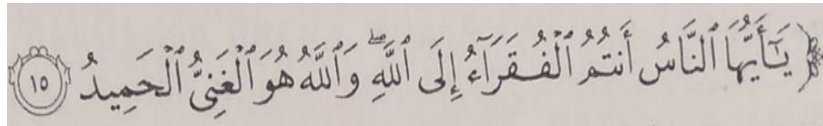 ﴿ يَٰٓأَيُّهَا ٱلنَّاسُ أَنتُمُ ٱلْفُقَرَآءُ إِلَى ٱللَّهِۖ وَٱللَّهُ هُوَ ٱلْغَنِىُّ ٱلْحَمِيدُ ١٥